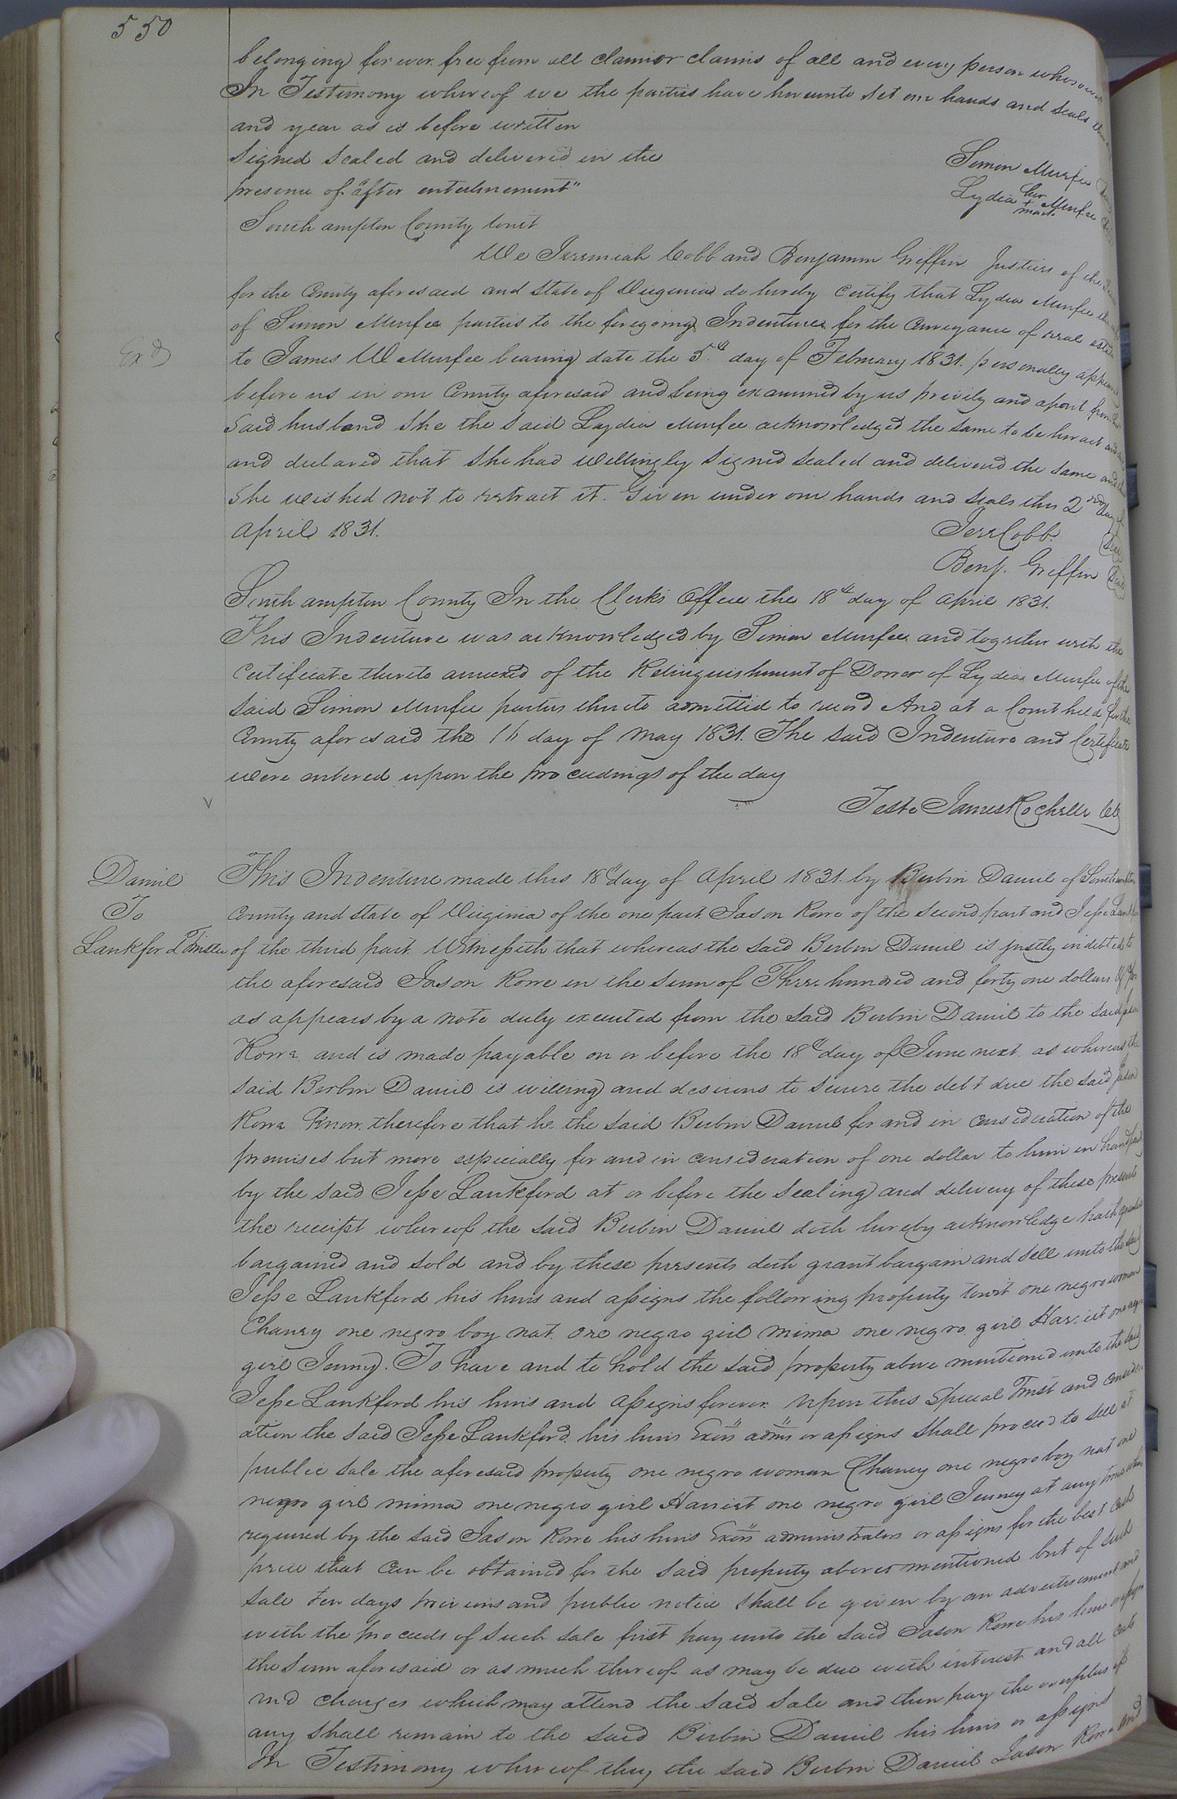 550
belonging for ever free from all claim or claims of all and every person whosoever
In Testimony whereof we the parties have hereunto set our hands and seals
and year as is before written
Signed Sealed and delivered in the
presence of "after enterlinement"
Simon Murfee
Lydia her + mark Murfee
Southampton County Court
We Jeremiah Cobb and Benjamin Griffin Justices of the
for the County aforesaid and State of Virginia do hereby Certify that Lydia Murfee the
of Simon Murfee parties to the foregoing Indenture for the Conveyance of real estate
Exd
to James W Murfee bearing date the 5th day of February 1831. personally appeared
before us in our County aforesaid and being examined by us privily and apart from
Said husband She the Said Lydia Murfee acknowledged the same to be her act and
and declared that She had Willingly Signed Sealed and delivered the same and
She wished not to retract it. Given under our hands and Seals this 2nd day of
April 1831.
Jere Cobb. Seal
Benj. Griffin Seal
Southampton County In the Clerks Office the 18th day of April 1831.
This Indenture was acknowledged by Simon Murfee and together with the
Certificate thereto annexed of the Relinquishment of Dower of Lydia Murfee of the
Said Simon Murfee parties thereto admitted to record And at a Court held for the
County aforesaid the 16 day of May 1831. The Said Indenture and Certificate
were entered upon the proceedings of the day
Teste James Rochelle Clk
Daniel
To
Lankford Trustee
This Indenture made this 18th day of April 1831. by Burbin Daniel of Southampton
County and State of Virginia of the one part Jason Rowe of the Second part and Jesse Lankford
of the third part Witnesseth that whereas the Said Burbin Daniel is justly indebted to
the aforesaid Jason Rowe in the Sum of Three hundred and forty one dollars
as appears by a note duly executed from the Said Burbin Daniel to the Said Jason
Rowe and is made payable on or before the 18th day of June next. as whereas the
Said Burbin Daniel is willing and desirous to Secure the debt due the Said Jason
Rowe Know therefore that he the Said Burbin Daniel for and in consideration of the
premises but more especially for and in consideration of one dollar to him in hand paid
by the Said Jesse Lankford at or before the Sealing and delivery of these presents
the receipt whereof the Said Burbin Daniel doth hereby acknowledge hath granted
bargained and Sold and by these presents doth grant bargain and Sell unto the Said
Jesse Lankford his heirs and assigns the following property towit one negro woman
Chaney one negro boy nat. one negro girl mima one negro girl Harriet one negro
girl Jenny. To have and to hold the Said property above mentioned unto the Said
Jesse Lankford his heirs and assigns forever. Upon this Special Trust and consider-
ation the Said Jesse Lankford, his heirs Exors adms or assigns Shall proceed to sell at
public Sale the aforesaid property one negro woman Chaney one negro boy nat one
negro girl mima one negro girl Harriet one negro girl Jenney at any time when
required by the Said Jason Rowe his heirs Exors administrators or assigns for the best Cash
price that Can be obtained for the Said property above mentioned but of Such
Sale ten days previous and public notice Shall be given by an advertisement and
with the proceeds of Such Sale first pay unto the Said Jason Rowe his heirs or assigns
the Sum aforesaid or as much thereof as may be due with interest and all Costs
and charges which may attend the Said Sale and then pay the overplus if
any Shall remain to the Said Burbin Daniel his heirs or assigns
In Testimony whereof they the Said Burbin Daniel Jason Rowe and